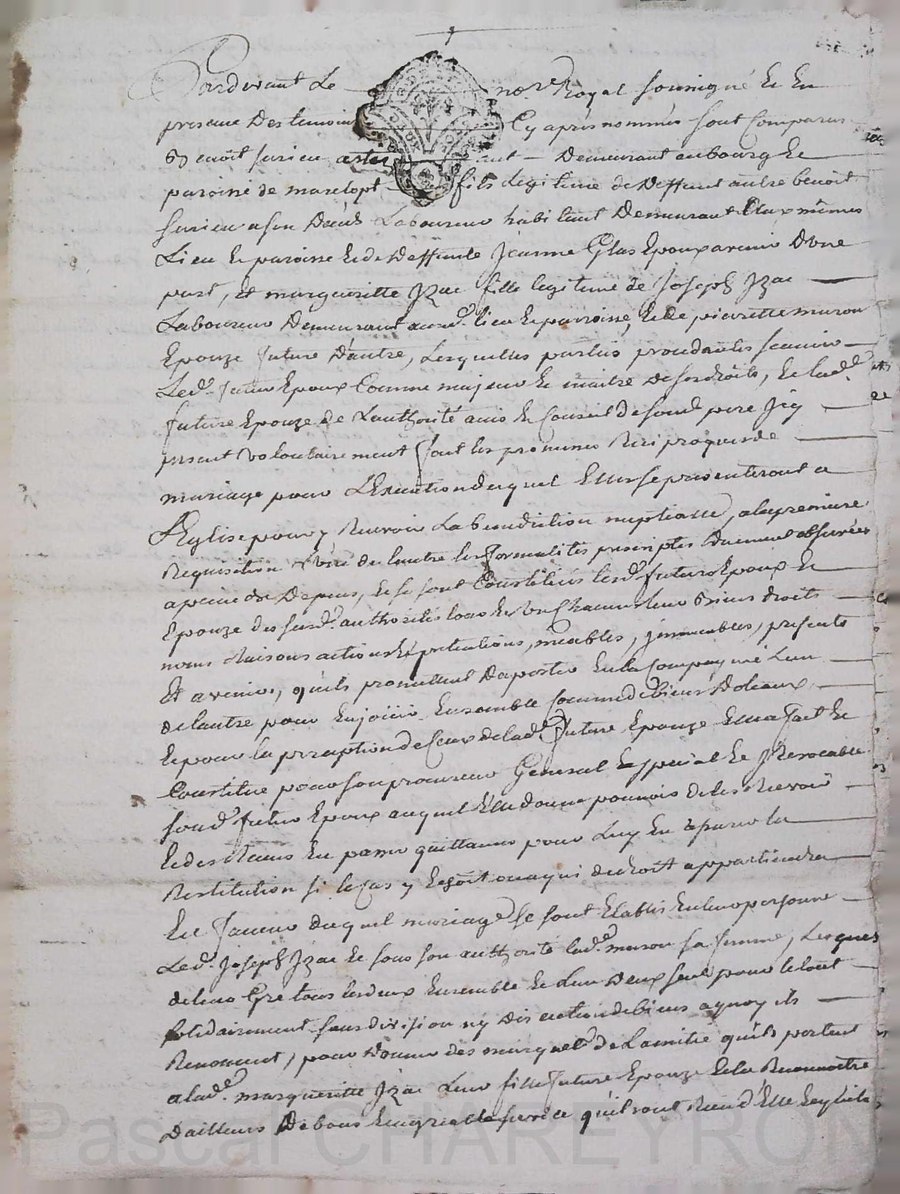 Pardevant Le no.re Royal soussigné Et En
presence Des temoins Cy apres nommés sont Comparus
Benoît surieu Demeurant au bourg Et
paroisse de marclopt fils legitime de Deffunt autre benoît
surieu a son Deces Laboureur habitant Demeurant mêmes
Lieu Et paroisse Et de Deffunte Jeanne Glas Epoux avenir D'une
part, Et margueritte Jzac fille legitime de Joseph Jzac
Laboureur Demeurant aux.d. lieu Et paroisse, Et de pierrette muron
Epouze future D'autre, Lesquelles parties procedantes scavoir
Led. futur Epoux Comme majeur Et maitre De ses droits, Et lad.e
future Epouze de L'authorité avis Et Conseil De sond. pere Jcy
present Volontairement sont les promesses Reciproques de
mariage pour L'Execution duquel Elles se presenteront a
L'Eglise pour y Recevoir La benediction nuptialle, a la premiere
Requisition L'une de lautre les formalités prescriptes Duement observées
a peine de Depens, Et se sont Constitués lesd. futurs Epoux Et
Epouze des susd. authorités tous Et Un Chacuns leurs Biens droits
noms Raisons actions Et pretentions, meubles, jmmeubles, presents
Et avenirs, quils promettent D'aporter En la Compagnie L'un
de lautre pour En jouir Ensemble Comme de biens Dotaux
Et pour la perception de Ceux de lad.e future Epouze Elle a fait Et
Constitué pour son procureur General Especial Et Jrrevocable
sond. futur Epoux auquel Elle donne pouvoir de les Recevoir
Et des Recus En passer quittances pour Luy En la
Restitution si le Cas y Echoit ou a qui de droit appartiendra
En faveur duquel mariage se sont Etablis En leurs personnes
Led. Joseph Jzac Et sous son authorité lad.e muron sa femme, Lesquels
de leur Gré tous lesdeux Ensemble Et L'un Deux seul pour le tout
solidairement sans division ny Discution de biens a quoy ils
Renoncent, pour Donner des marques De L'amitié quils portent
a lad.e margueritte Jzac Leur fille future Epouze Et la Reconnoitre
D'ailleurs De bons Et agreables services quils ont Recu d'Elle
Pascal CHAREYRON